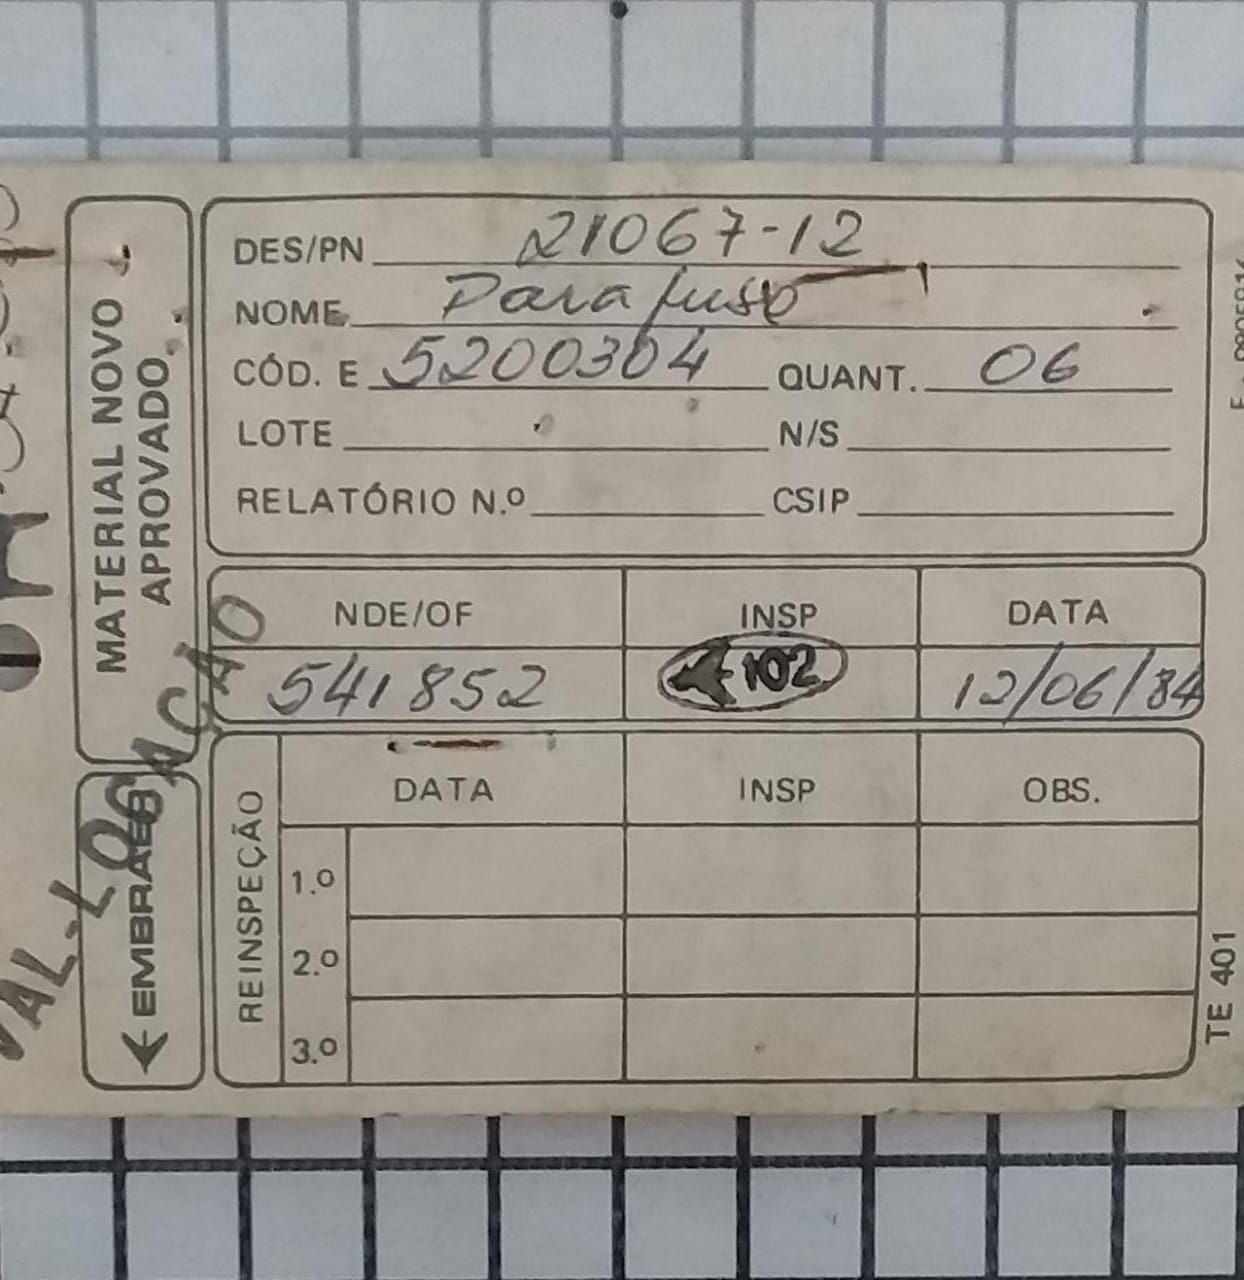 MATERIAL NOVO
APROVADO
EMBRAER
DES/PN 21067-12
NOME Parafuso
CÓD. E 5200304 QUANT. 06
LOTE N/S
RELATÓRIO N.º CSIP
NDE/OF INSP DATA
541852 102 12/06/84
REINSPEÇÃO
DATA INSP OBS.
1.º
2.º
3.º
TE 401